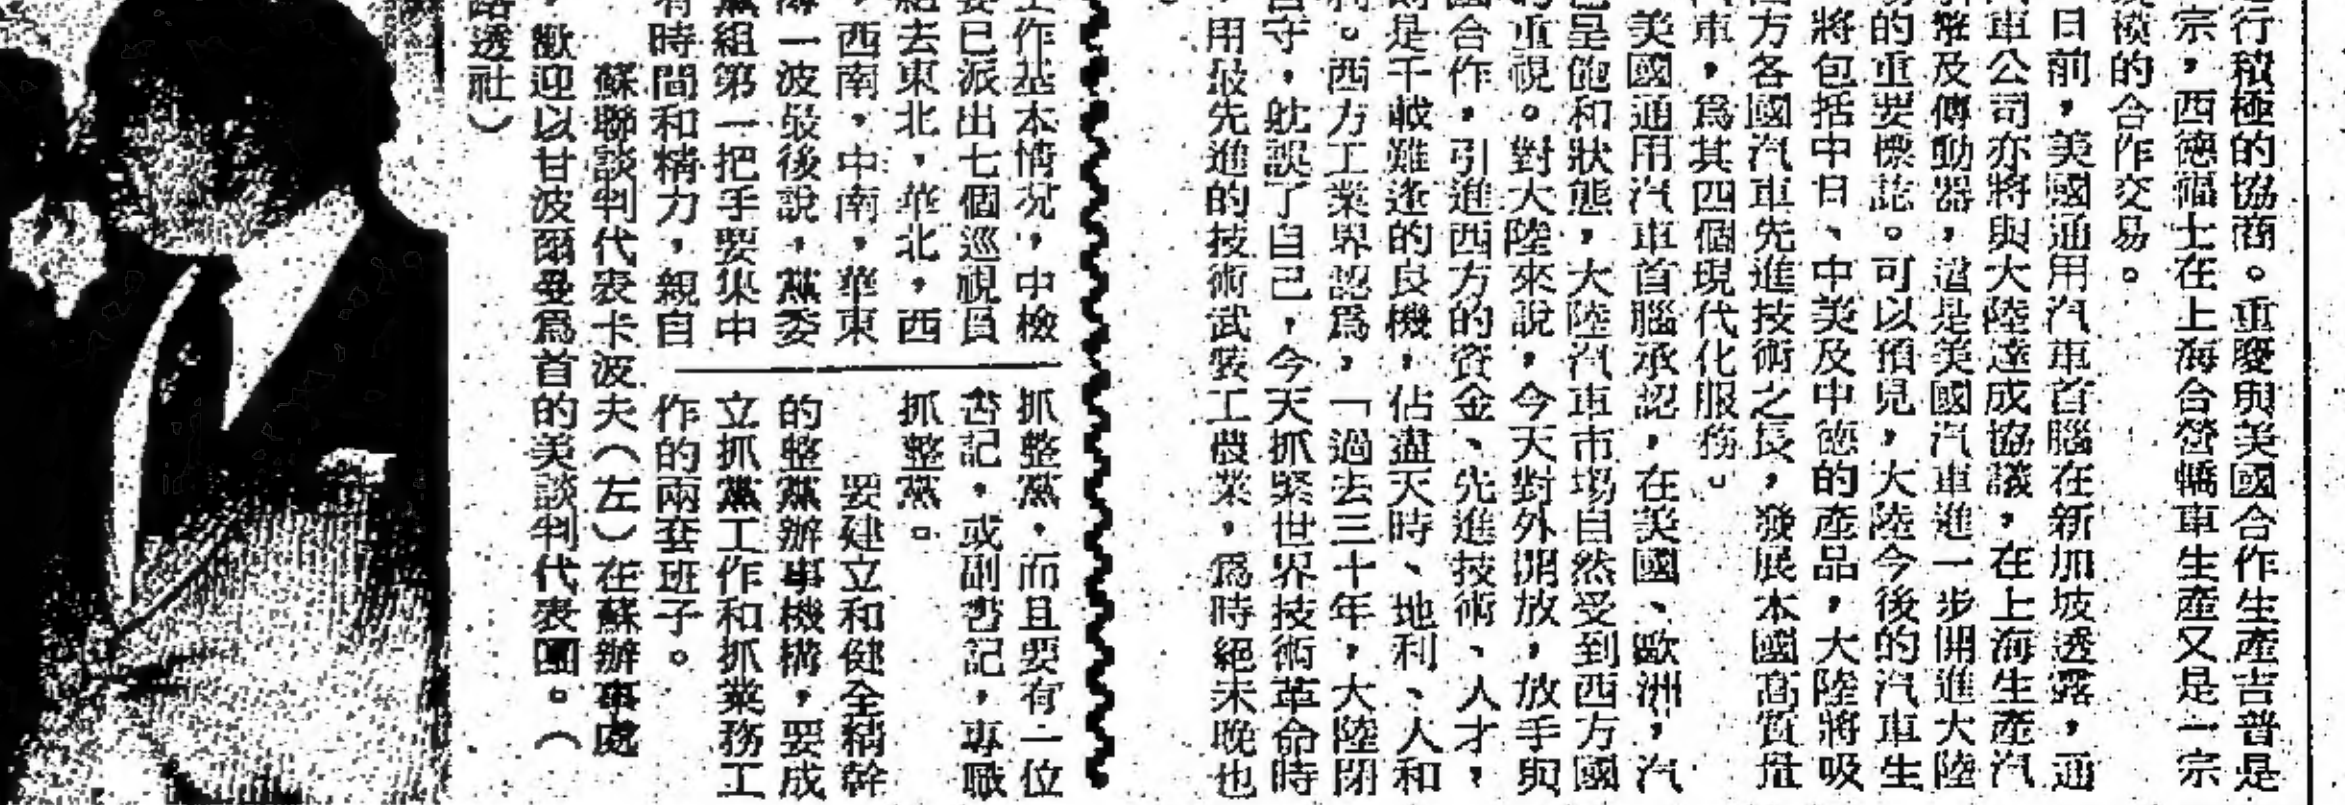 行積極的協商。重慶與美國合作生產吉普是
宗，西德福士在上海合營轎車生產又是一宗
積的合作交易。
日前，美國通用汽車首腦在新加坡透露，通
車公司亦將與大陸達成協議，在上海生產汽
擎及傳動器，這是美國汽車進一步開進大陸
的重要標誌。可以預見，大陸今後的汽車生
將包括中日、中美及中德的產品，大陸將吸
方各國汽車先進技術之長，發展本國高質量
車，爲其四個現代化服務。
美國通用汽車首腦承認，在美國、歐洲，汽
呈飽和狀態，大陸汽車市場自然受到西方國
重視。對大陸來說，今天對外開放，放手與
合作，引進西方的資金、先進技術、人才，
是千載難逢的良機，佔盡天時、地利、人和
。西方工業界認爲，「過去三十年，大陸閉
守，躭誤了自己，今天抓緊世界技術革命時
用最先進的技術武裝工農業，爲時絕未晚也
作基本情況，中檢
已派出七個巡視員
去東北，華北，西
，西南，中南，華東
一波最後說，黨委
組第一把手要集中
時間和精力，親自
抓整黨，而且要有一位
書記，或副書記，專職
抓整黨。
要建立和健全精幹
的整黨辦事機構，要成
立抓黨工作和抓業務工
作的兩套班子。
蘇聯談判代表卡波夫（左）在蘇辦事處
，歡迎以甘波爾曼爲首的美談判代表團。（
路透社）